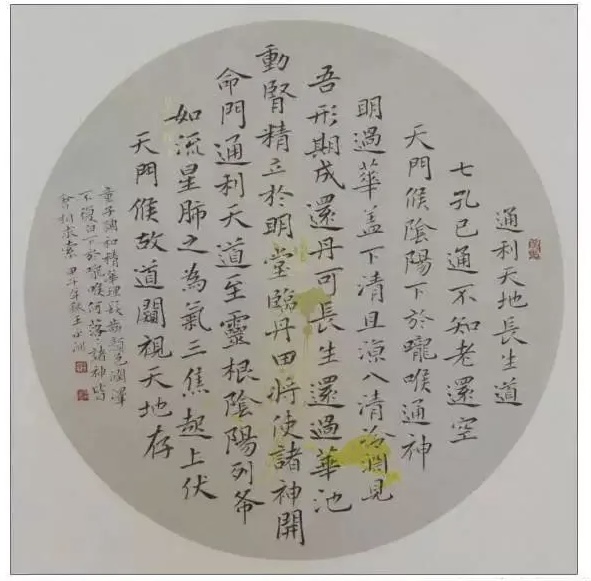 通利天地長生道
七孔已通不知老還空
天門候陰陽下於嚨喉通神
明過華盖下清且涼入清泠淵見
吾形期成還丹可長生還過華池
動腎精立於明堂臨丹田將使諸神開
命門通利天道至靈根陰陽列布
如流星肺之為氣三焦起上伏
天門候故道闚視天地存
童子調和精華理髮齒顏色潤澤
不復白下於嚨喉何落落諸神皆
會相求索 甲午年秋王